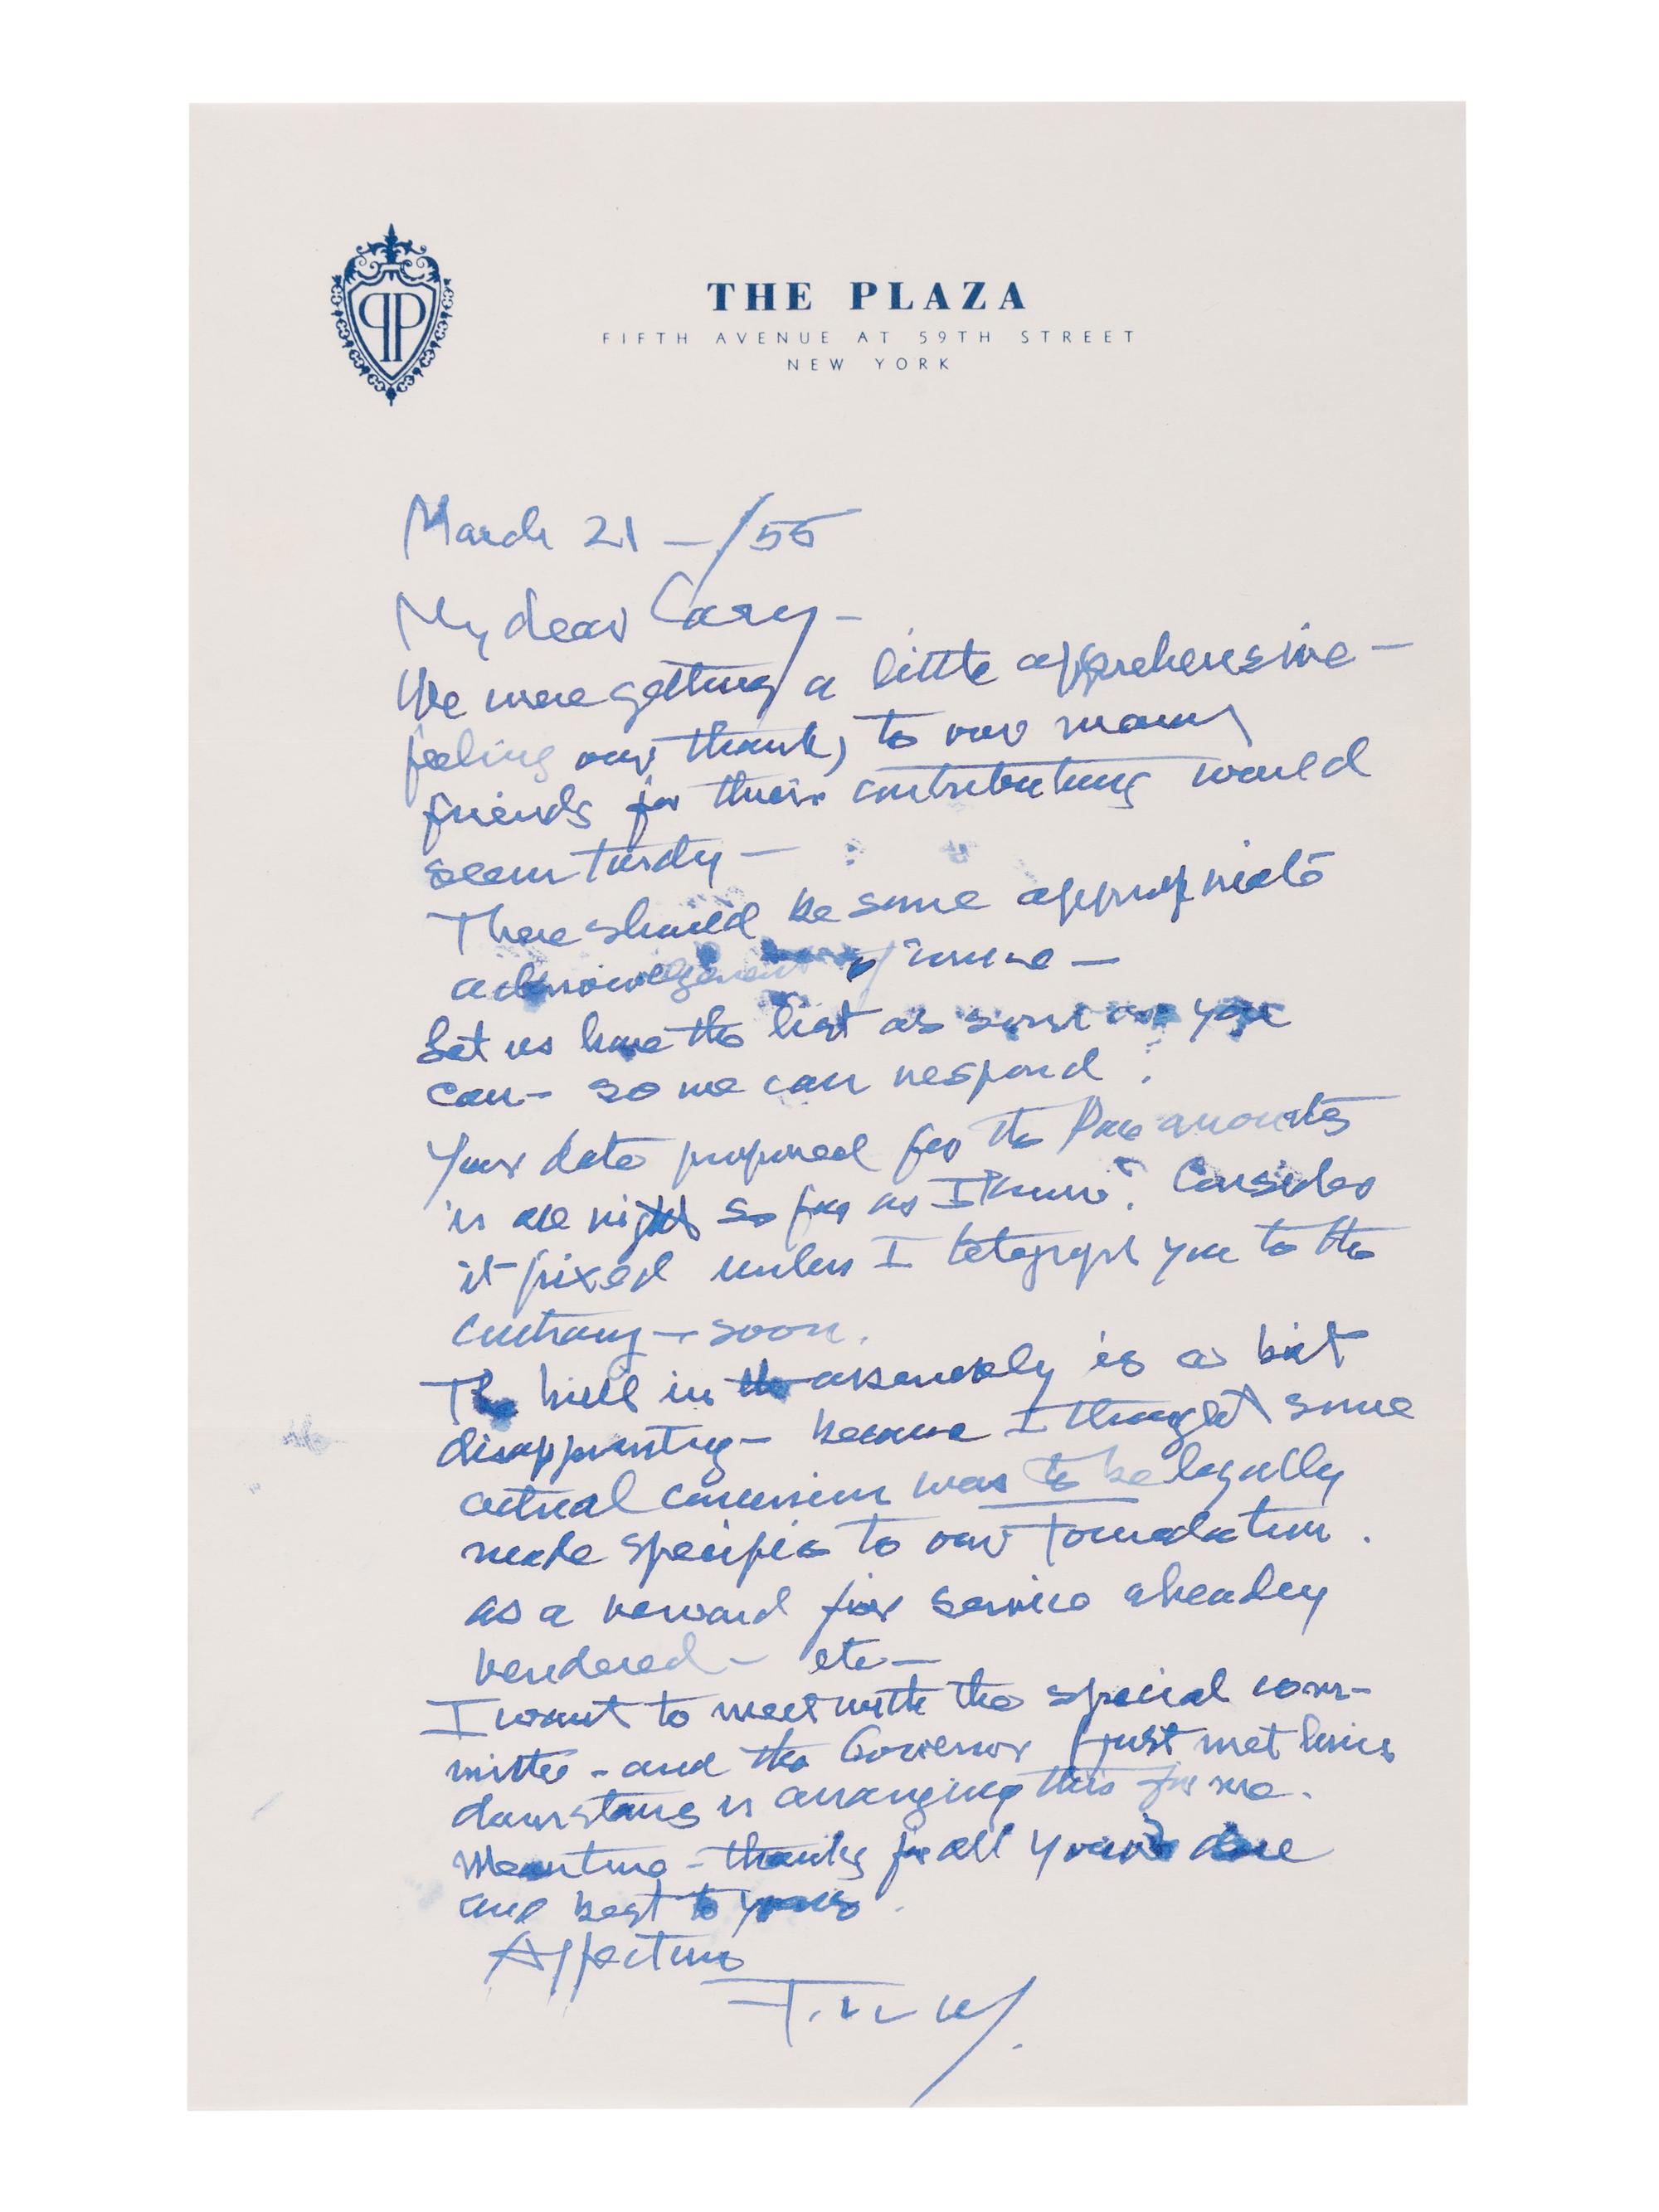 PP
THE PLAZA
FIFTH AVENUE AT 59TH STREET
NEW YORK
March 21 – /55
My dear Cary –
We were getting a little apprehensive –
feeling our thanks to our many
friends for their contributing would
seem tardy –
There should be some appropriate
acknowledgement of mine –
Let us have the list as soon as you
can – so we can respond.
Your date proposed for the
is all right so far as I know. Consider
it fixed unless I telegraph you to the
contrary – soon.
The bill in the assembly is a bit
disappointing – because I thought some
actual concession was to be legally
made specific to our Foundation.
as a reward for service already
rendered – etc –
I want to meet with the special com-
mittee – and the Governor (just met him
downstairs is arranging this for me.
Meantime – thanks for all you've done
and best to yours.
Affection
F.LL.W.